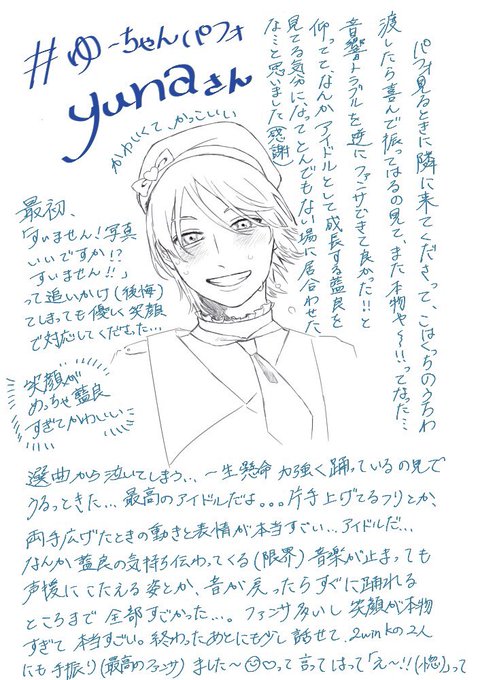 #ゆーちゃんパフォ
yunaさん
かわいくて、かっこいい
パフォ見るときに隣に来てくださって、こはくっちのうちわ
渡したら喜んで振ってはるの見て、また本物や〜!!ってなった…
音響トラブルを逆にファンサできて良かった!!と
仰ってて、なんかアイドルとして成長する藍良を
見てる気分になってとんでもない場に居合わせた
な…と思いました(感謝)
最初、
「すいません!写真
いいですか!?
すいません!!」
って追いかけ(後悔)
てしまっても優しく笑顔
で対応してくださった…
笑顔が
めっちゃ藍良
すぎてかわいい
選曲から泣いてしまう… 一生懸命 力強く踊っているの見て
うるっときた… 最高のアイドルだよ。。。片手上げてるフリとか、
両手広げたときの動きと表情が本当すごい… アイドルだ…
なんか藍良の気持ち伝わってくる(限界) 音楽が止まっても
声援にこたえる姿とか、音が戻ったらすぐに踊れる
ところまで 全部すごかった…。ファンサ多いし 笑顔が本物
すぎて 本当すごい。終わったあとにも少し話せて、2winkの2人
にも手振り(最高のファンサ)ました〜☺♡って言てはって「え〜!!(惚)」って